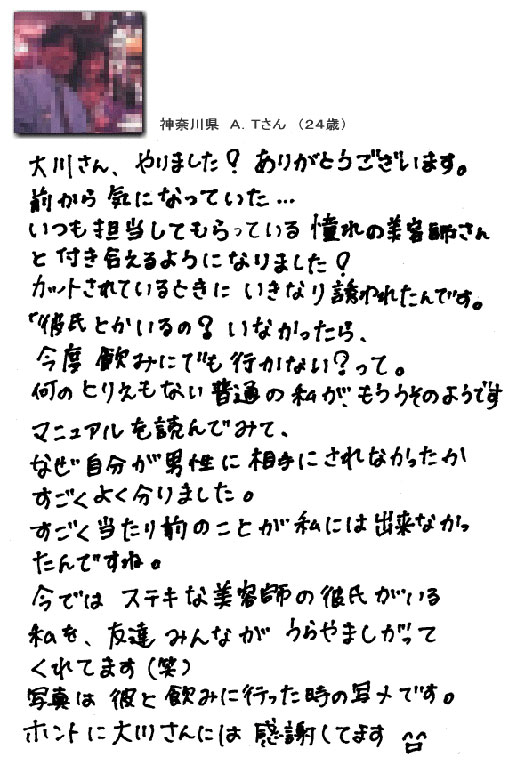 神奈川県 A.Tさん （24歳）
大川さん、やりました！ありがとうございます。
前から気になっていた…
いつも担当してもらっている憧れの美容師さん
と付き合えるようになりました！
カットされているときにいきなり誘われたんです。
「彼氏とかいるの？いなかったら、
今度飲みにでも行かない？って。
何のとりえもない普通の私が、もううそのようです
マニュアルを読んでみて、
なぜ自分が男性に相手にされなかったか
すごくよく分りました。
すごく当たり前のことが私には出来なかっ
たんですね。
今ではステキな美容師の彼氏がいる
私を、友達みんながうらやましがって
くれてます(笑)
写真は彼と飲みに行った時の写メです。
ホントに大川さんには感謝してます ^^